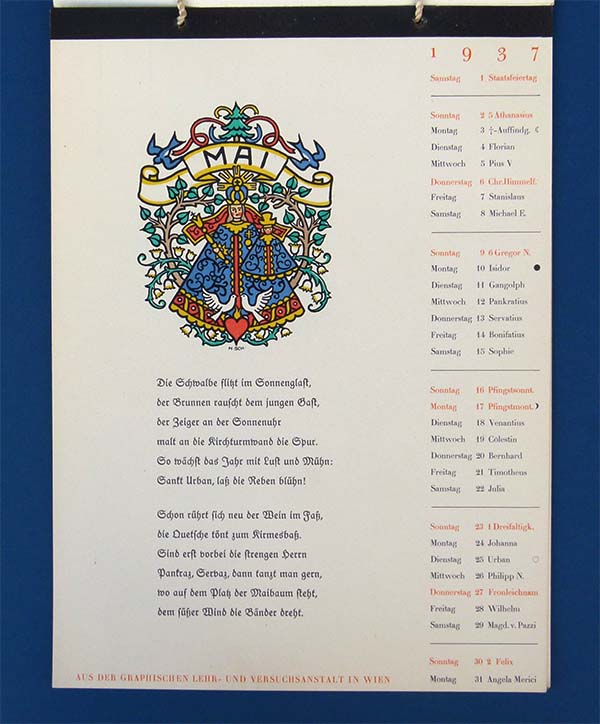 MAI
H·SCH·
Die Schwalbe flitzt im Sonnenglast,
der Brunnen rauscht dem jungen Gast,
der Zeiger an der Sonnenuhr
malt an die Kirchturmwand die Spur.
So wächst das Jahr mit Lust und Mühn:
Sankt Urban, laß die Reben blühn!
Schon rührt sich neu der Wein im Faß,
die Quetsche tönt zum Kirmesbaß.
Sind erst vorbei die strengen Herrn
Pankraz, Servaz, dann tanzt man gern,
wo auf dem Platz der Maibaum steht,
dem süßer Wind die Bänder dreht.
AUS DER GRAPHISCHEN LEHR- UND VERSUCHSANSTALT IN WIEN
1 9 3 7
Samstag 1 Staatsfeiertag
Sonntag 2 5 Athanasius
Montag 3 †-Auffindg. ☾
Dienstag 4 Florian
Mittwoch 5 Pius V
Donnerstag 6 Chr.Himmelf.
Freitag 7 Stanislaus
Samstag 8 Michael E.
Sonntag 9 6 Gregor N.
Montag 10 Isidor ●
Dienstag 11 Gangolph
Mittwoch 12 Pankratius
Donnerstag 13 Servatius
Freitag 14 Bonifatius
Samstag 15 Sophie
Sonntag 16 Pfingstsonnt.
Montag 17 Pfingstmont. ☽
Dienstag 18 Venantius
Mittwoch 19 Cölestin
Donnerstag 20 Bernhard
Freitag 21 Timotheus
Samstag 22 Julia
Sonntag 23 1 Dreifaltigk.
Montag 24 Johanna
Dienstag 25 Urban ○
Mittwoch 26 Philipp N.
Donnerstag 27 Fronleichnam
Freitag 28 Wilhelm
Samstag 29 Magd. v. Pazzi
Sonntag 30 2 Felix
Montag 31 Angela Merici